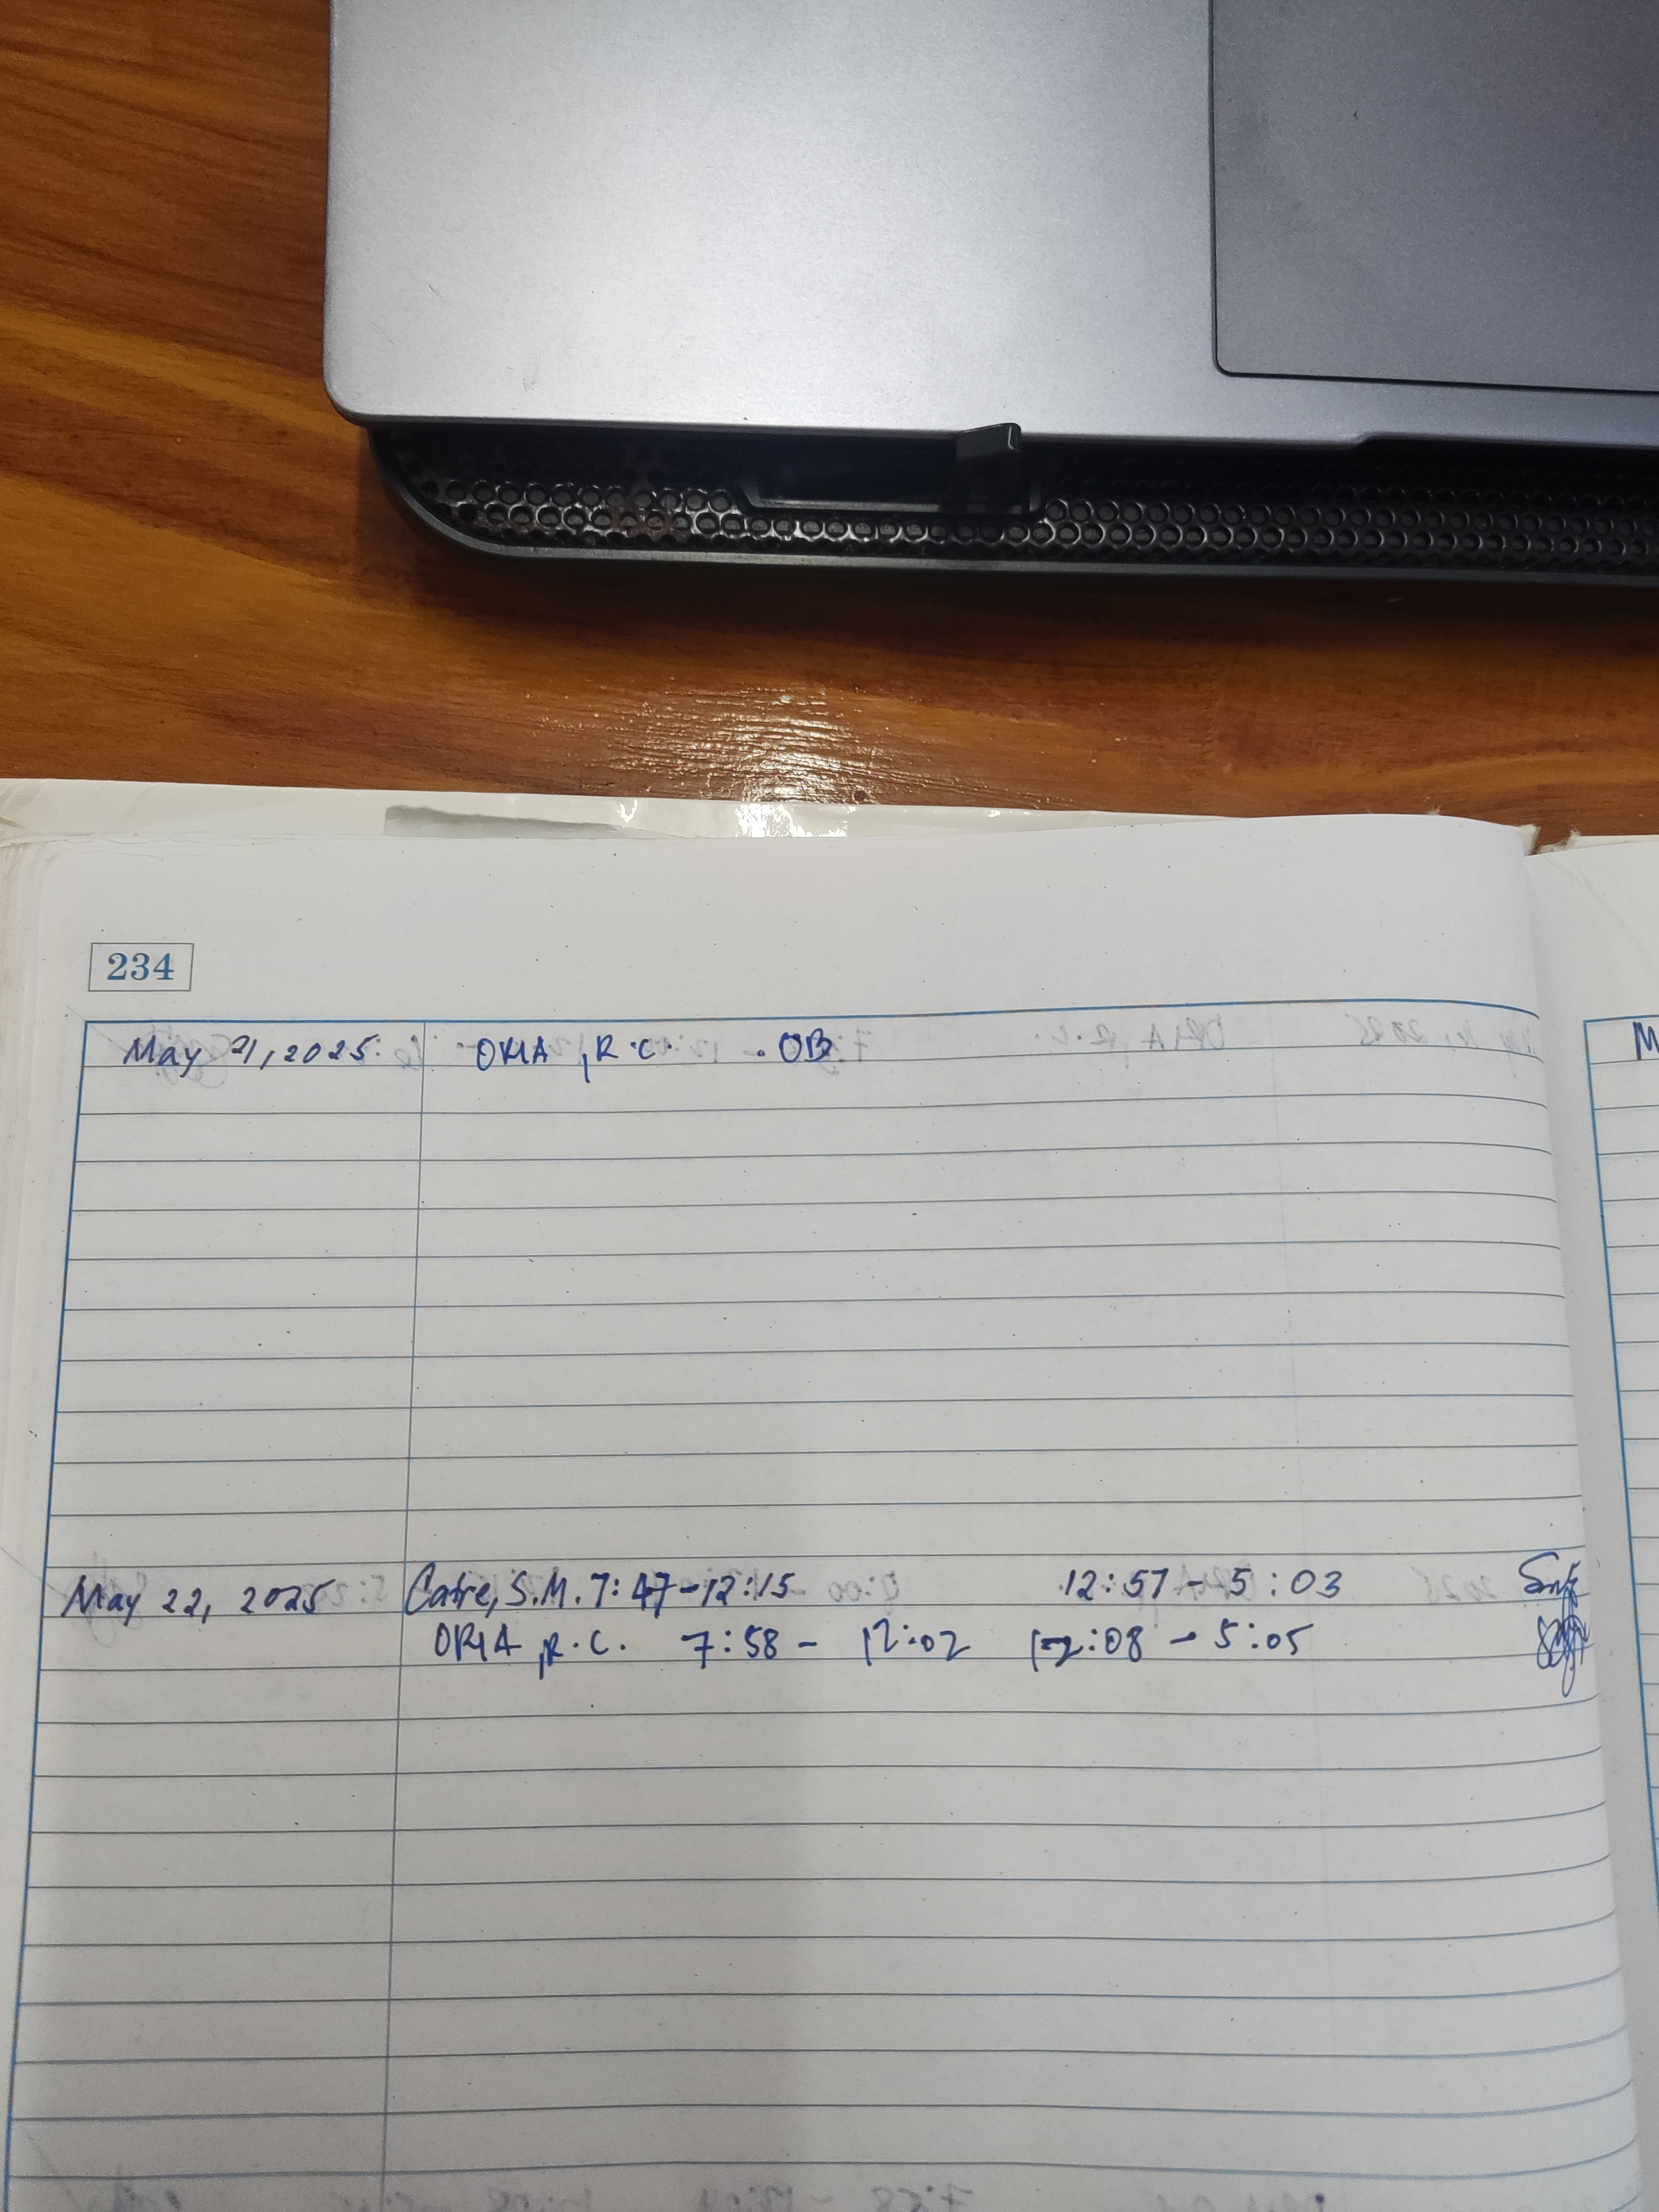 234
May 21, 2025. ORIA, R.C. - OB
M
May 22, 2025 Catre, S.M. 7:47-12:15 12:57 - 5:03
ORIA, R.C. 7:58 - 12:02 12:08 - 5:05